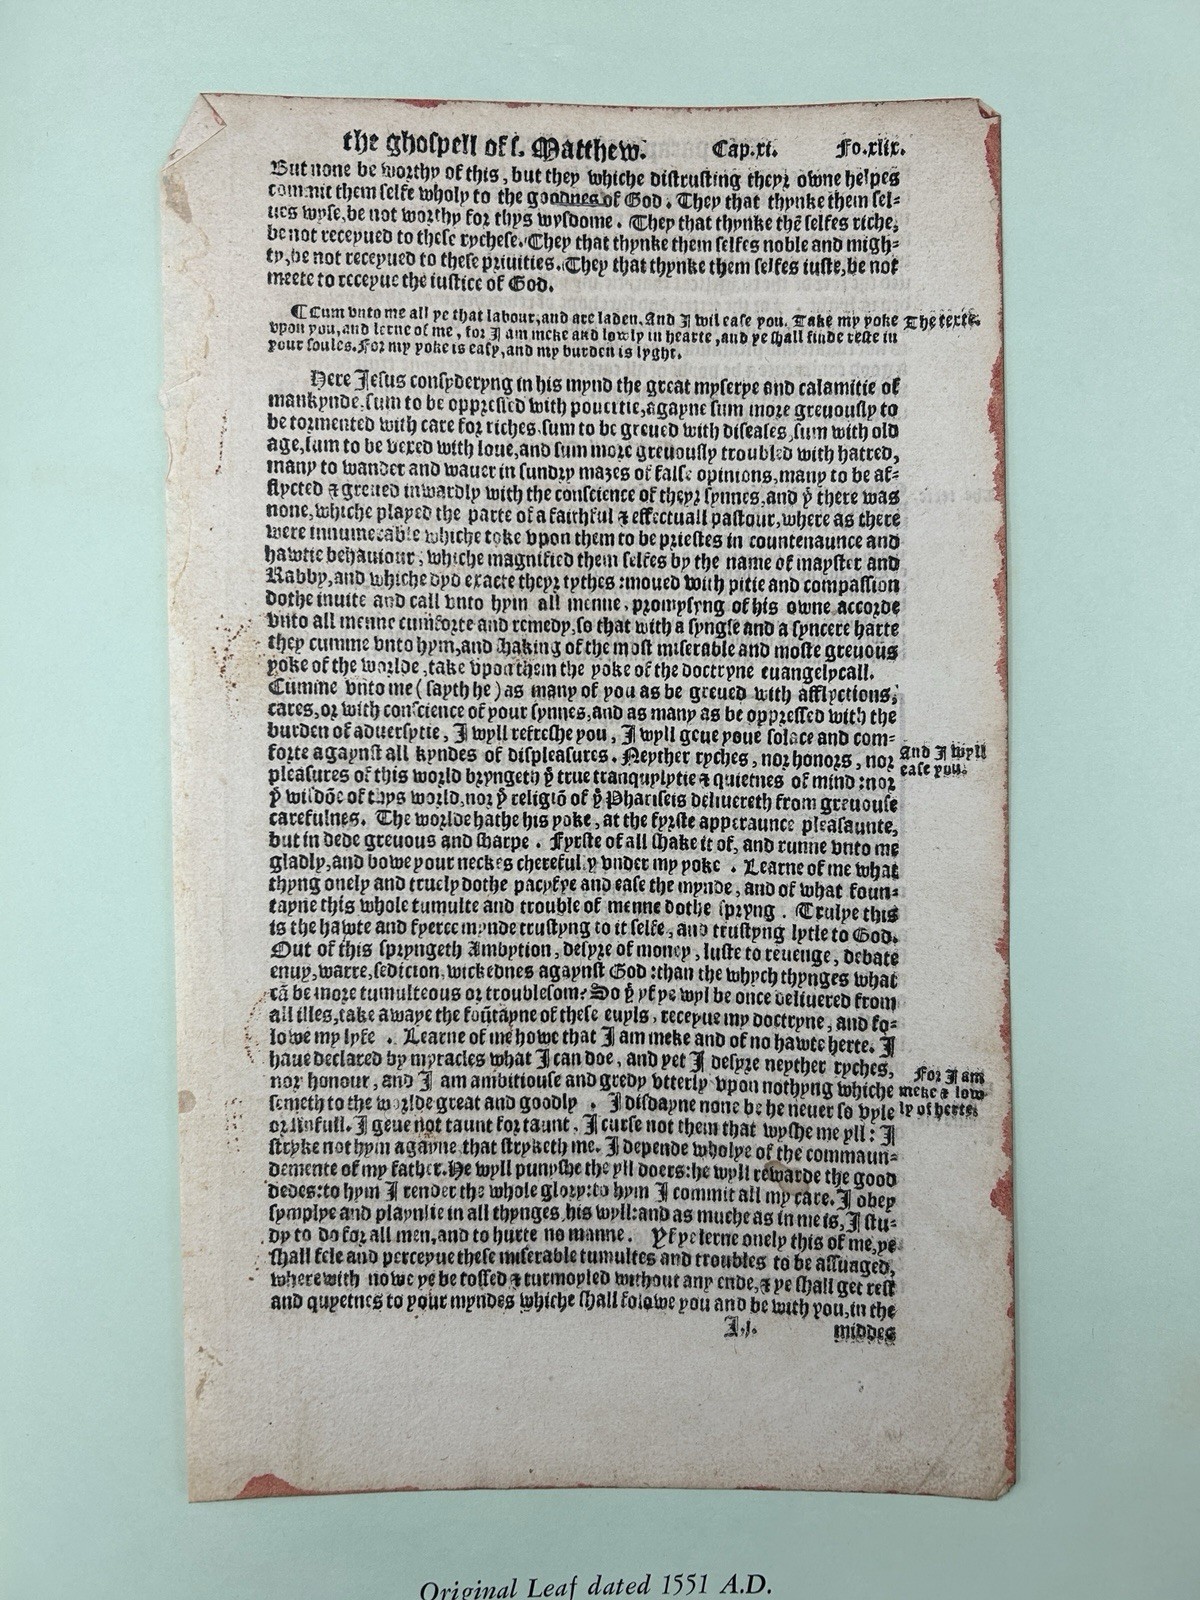 the ghospell of s. Matthew. Cap.xi. Fo.xlix.
But none be worthy of this, but they whiche distrusting theyr owne helpes
commit them selfe wholy to the goodnes of God. They that thynke them sel=
ues wyse, be not worthy for thys wysdome. They that thynke thē selfes riche,
be not receyued to these rychese. They that thynke them selfes noble and migh=
ty, be not receyued to these priuities. They that thynke them selfes iuste, be not
meete to receyue the iustice of God.
¶ Cum vnto me all ye that labour, and are laden. And I wil ease you. Take my yoke
vpon you, and lerne of me, for I am meke and lowly in hearte, and ye shall finde reste in
your soules. For my yoke is easy, and my burden is lyght.
The texte.
Here Jesus consyderyng in his mynd the great myserye and calamitie of
mankynde, sum to be oppressed with pouertie, agayne sum more greuously to
be tormented with care for riches, sum to be greued with diseases, sum with old
age, sum to be vexed with loue, and sum more greuously troubled with hatred,
many to wander and wauer in sundry mazes of false opinions, many to be af=
flycted & greued inwardly with the conscience of theyr synnes, and yͭ there was
none, whiche played the parte of a faithful & effectuall pastour, where as there
were innumerable whiche toke vpon them to be priestes in countenaunce and
hawtie behauiour, whiche magnified them selfes by the name of mayster and
Rabby, and whiche dyd exacte theyr tythes: moued with pitie and compassion
dothe inuite and call vnto hym all menne, promysyng of his owne accorde
vnto all menne cumforte and remedy, so that with a syngle and a syncere harte
they cumme vnto hym, and shaking of the most miserable and moste greuous
yoke of the worlde, take vpon them the yoke of the doctryne euangelycall.
Cumme vnto me (sayth he) as many of you as be greued with afflyctions,
cares, or with conscience of your synnes, and as many as be oppressed with the
burden of aduersytie, I wyll refreshe you, I wyll geue youe solace and com=
forte agaynst all kyndes of displeasures. Neyther ryches, nor honors, nor
And I wyll
ease you.
pleasures of this world bryngeth yͤ true tranquylytie & quietnes of mind: nor
yͤ wisdōe of thys world, nor yͤ religiō of yͤ Phariseis deliuereth from greuouse
carefulnes. The worlde hathe his yoke, at the fyrste apperaunce pleasaunte,
but in dede greuous and sharpe. Fyrste of all shake it of, and runne vnto me
gladly, and bowe your neckes cherefully vnder my yoke. Learne of me what
thyng onely and truely dothe pacyfye and ease the mynde, and of what foun=
tayne this whole tumulte and trouble of menne dothe spryng. Trulye this
is the hawte and fyerce mynde trustyng to it selfe, and trustyng lytle to God.
Out of this spryngeth Ambytion, desyre of money, luste to reuenge, debate
enuy, warre, sedicion, wickednes agaynst God: than the whych thynges what
cā be more tumulteous or troublesom? So yͭ yf ye wyl be once deliuered from
all illes, take awaye the foūtayne of these euyls, receyue my doctryne, and fo=
lowe my lyfe. Learne of me howe that I am meke and of no hawte herte. I
haue declared by myracles what I can doe, and yet I desyre neyther ryches,
nor honour, and I am ambitiouse and gredy vtterly vpon nothyng whiche
For I am
meke & low
ly of herte.
semeth to the worlde great and goodly. I disdayne none be he neuer so vyle
or sinfull. I geue not taunt for taunt, I curse not them that wyshe me yll: I
stryke not hym agayne that stryketh me. I depende wholye of the commaun=
demente of my father. He wyll punyshe the yll doers: he wyll rewarde the good
dedes: to hym I render the whole glory: to hym I commit all my care. I obey
symplye and playnlie in all thynges, his wyll: and as muche as in me is, I stu=
dy to do for all men, and to hurte no manne. Yf ye lerne onely this of me, ye
shall fele and perceyue these miserable tumultes and troubles to be assuaged,
wherewith nowe ye be tossed & turmoyled without any ende, & ye shall get rest
and quyetnes to your myndes whiche shall folowe you and be with you, in the
I.i. middes
Original Leaf dated 1551 A.D.